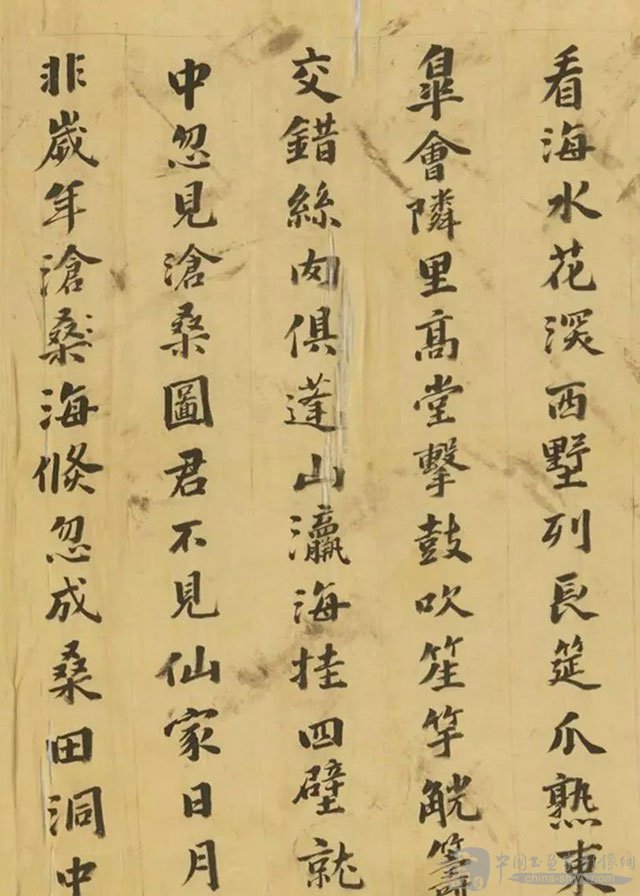 看海水花深西墅列長筵爪熟東
皐會隣里高堂擊鼓吹笙竽觥籌
交錯絲肉俱蓬山瀛海挂四壁就
中忽見滄桑圖君不見仙家日月
非歲年滄桑海倐忽成桑田洞中
中国工艺艺术网
china-shiyi.com